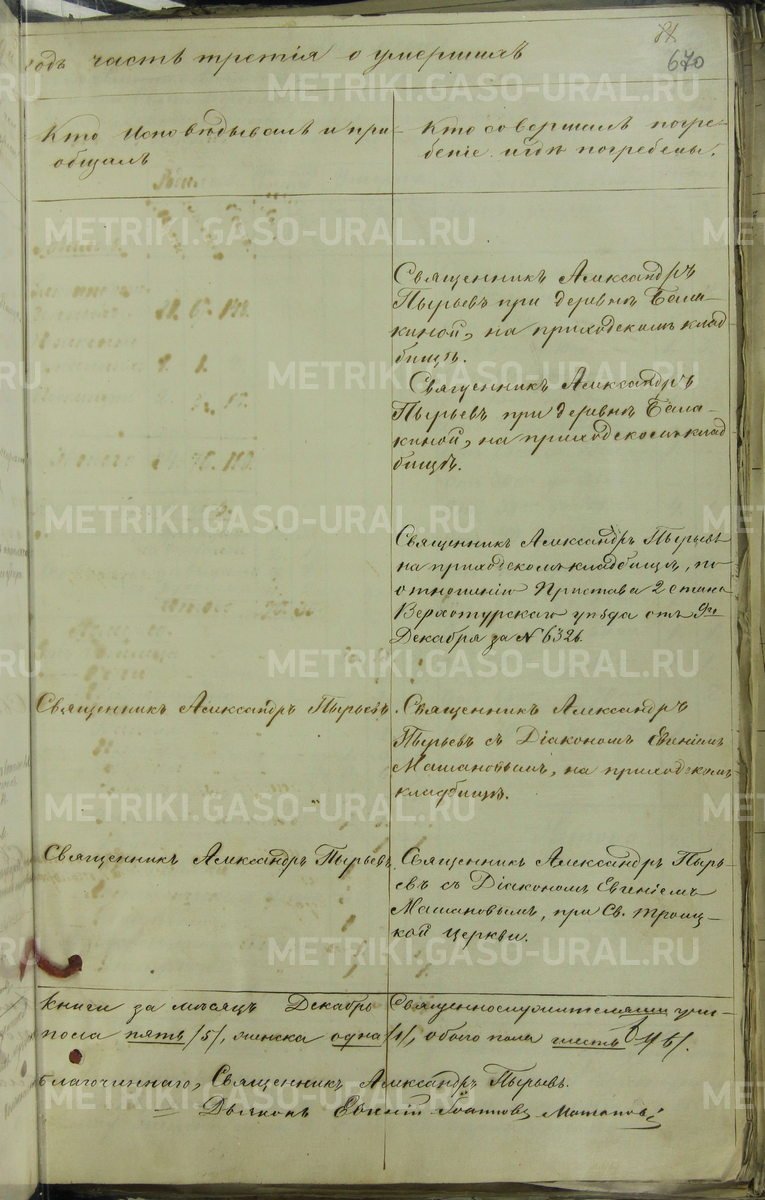 84
670
годъ часть третія о умершихъ
Кто исповѣдывалъ и прі-
общалъ
Кто совершалъ погре-
беніе и гдѣ погребены.
Священникъ Александръ
Пырьевъ при деревнѣ Бала-
киной, на приходскомъ клад-
бищѣ.
Священникъ Александръ
Пырьевъ при деревнѣ Бала-
киной, на приходскомъ клад-
бищѣ.
Священникъ Александръ Пырьевъ
на приходскомъ кладбищѣ, по
отношенію Пристава 2 стана
Верхотурскаго уѣзда отъ 9го
Декабря за № 6326
Священникъ Александръ Пырьевъ
Священникъ Александръ
Пырьевъ съ Діакономъ Евгеніемъ
Машановымъ, на приходскомъ
кладбищѣ.
Священникъ Александръ Пырьевъ
Священникъ Александръ Пырь-
евъ съ Діакономъ Евгеніемъ
Машановымъ, при Св. Троиц-
кой церкви.
книги за мѣсяцъ Декабрь Священнослужителями
пола пять /5/, женска одна /1/, обоего пола шесть /6/.
благочиннаго, Священникъ Александръ Пырьевъ.
Дьяконъ Евгеній Машановъ
METRIKI.GASO-URAL.RU